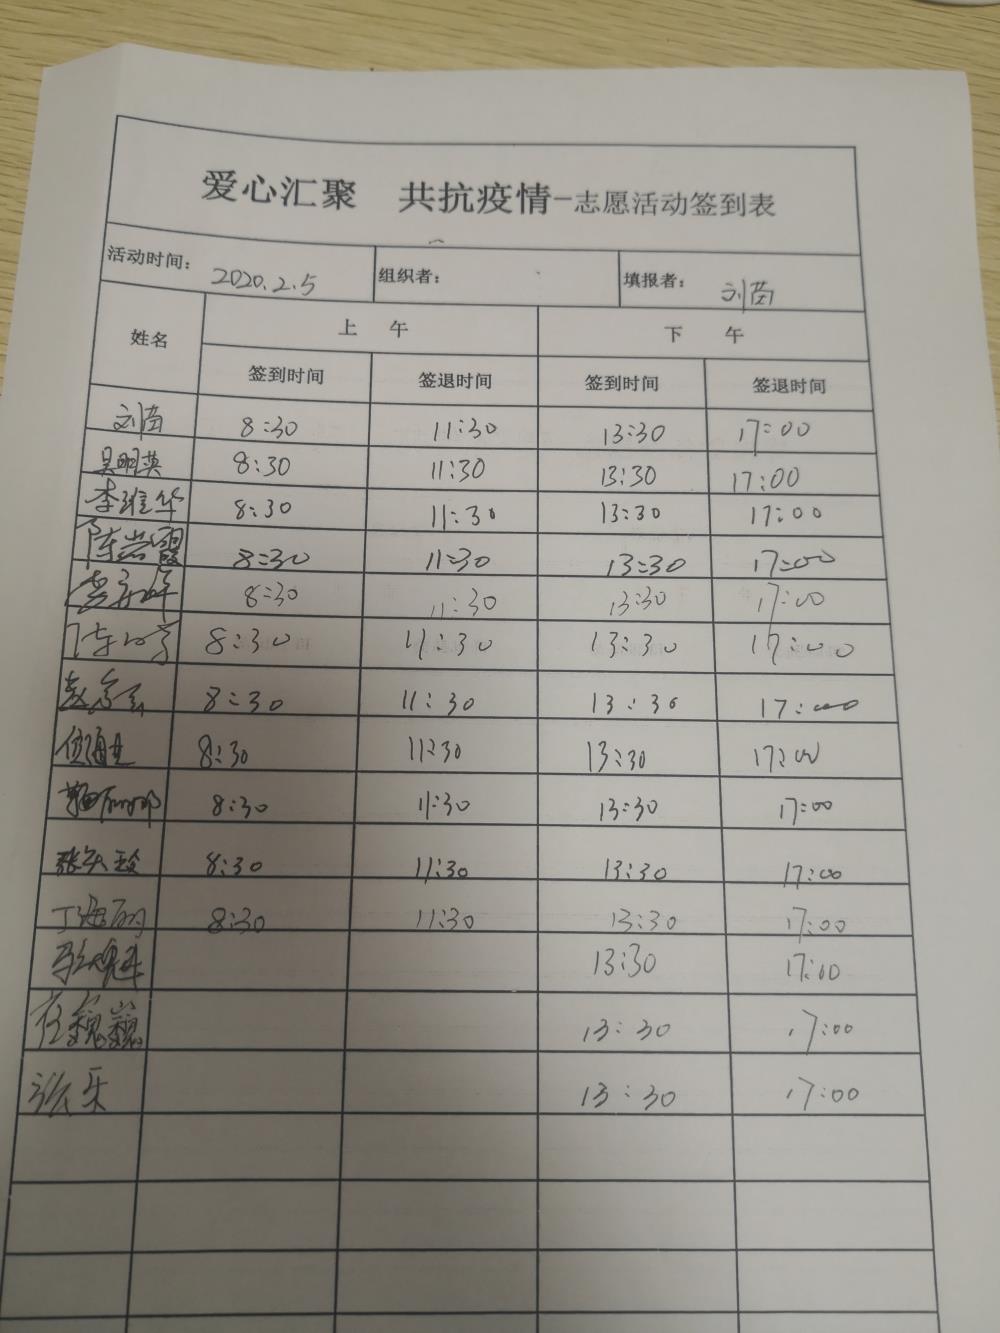 爱心汇聚 共抗疫情-志愿活动签到表
活动时间: 2020.2.5 组织者: 填报者: 刘苗
姓名 上 午 下 午
签到时间 签退时间 签到时间 签退时间
刘苗 8:30 11:30 13:30 17:00
吴明英 8:30 11:30 13:30 17:00
李维华 8:30 11:30 13:30 17:00
陈岩霞 8:30 11:30 13:30 17:00
8:30 11:30 13:30 17:00
8:30 11:30 13:30 17:00
8:30 11:30 13:30 17:00
8:30 11:30 13:30 17:00
8:30 11:30 13:30 17:00
8:30 11:30 13:30 17:00
丁海丽 8:30 11:30 13:30 17:00
13:30 17:00
任巍巍 13:30 17:00
张乐 13:30 17:00